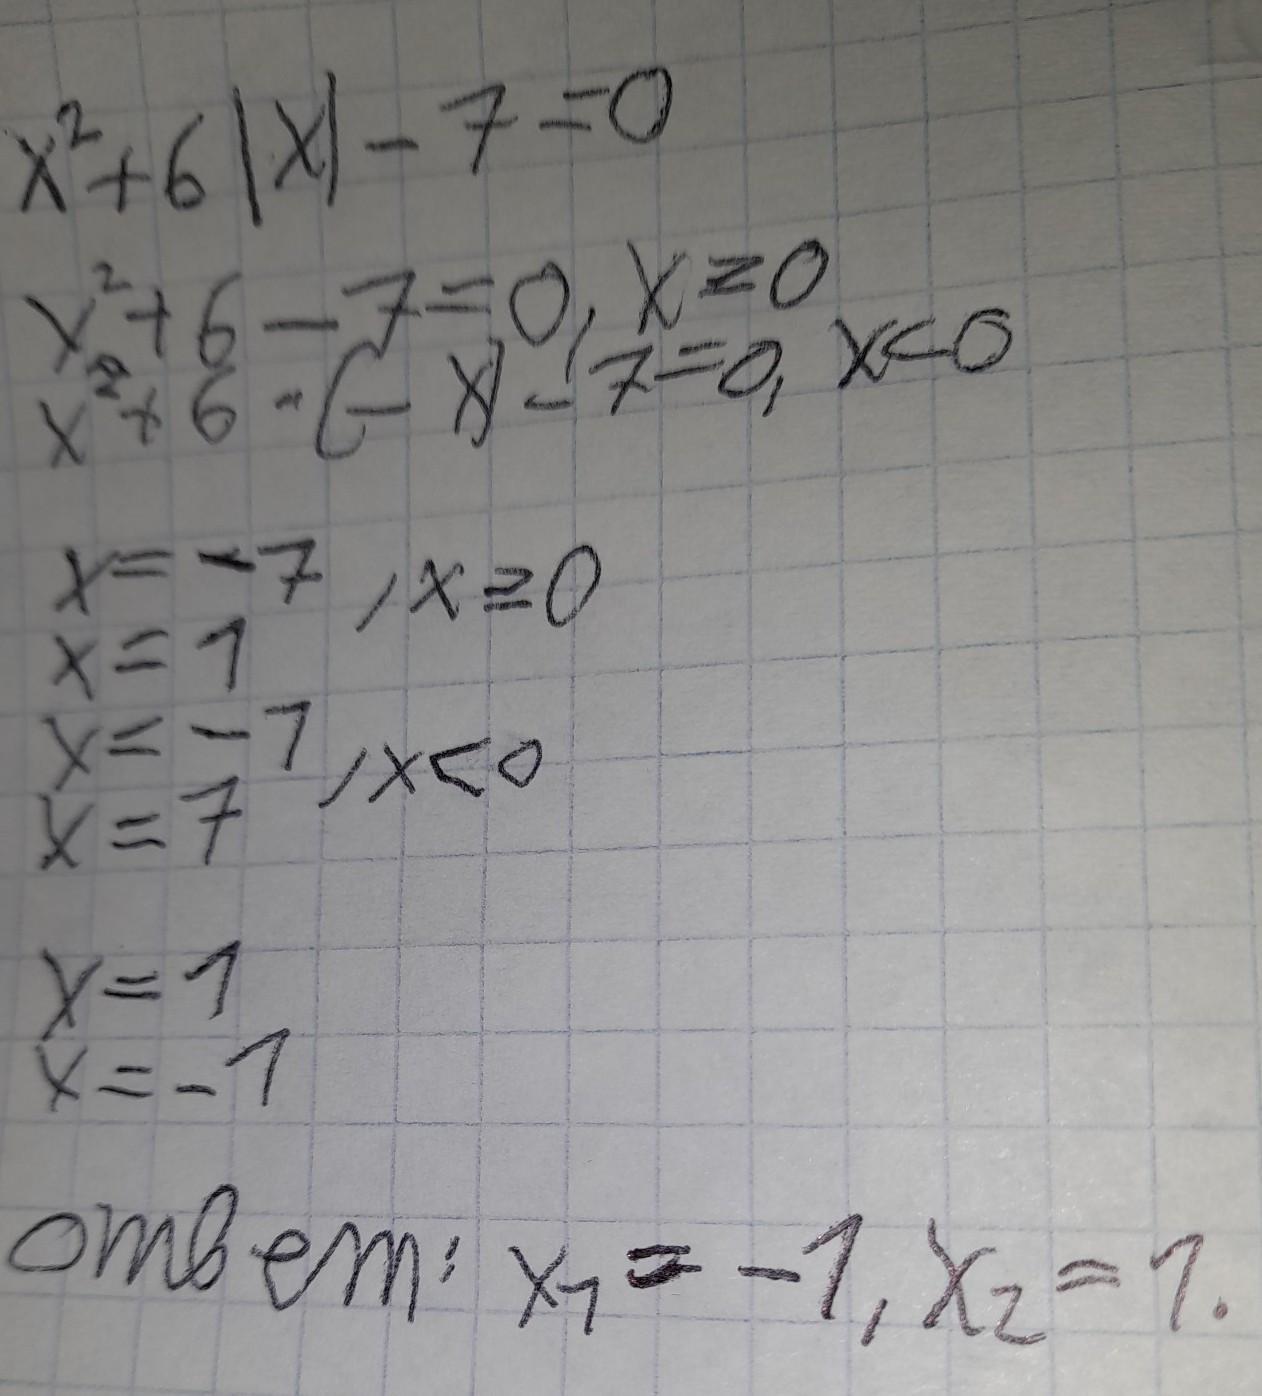 x²+6|x|-7=0
x²+6-7=0, x≥0
x²+6·(-x)-7=0, x<0
x=-7, x≥0
x=1
x=-1, x<0
x=7
x=1
x=-1
ответ: x₁=-1, x₂=1.